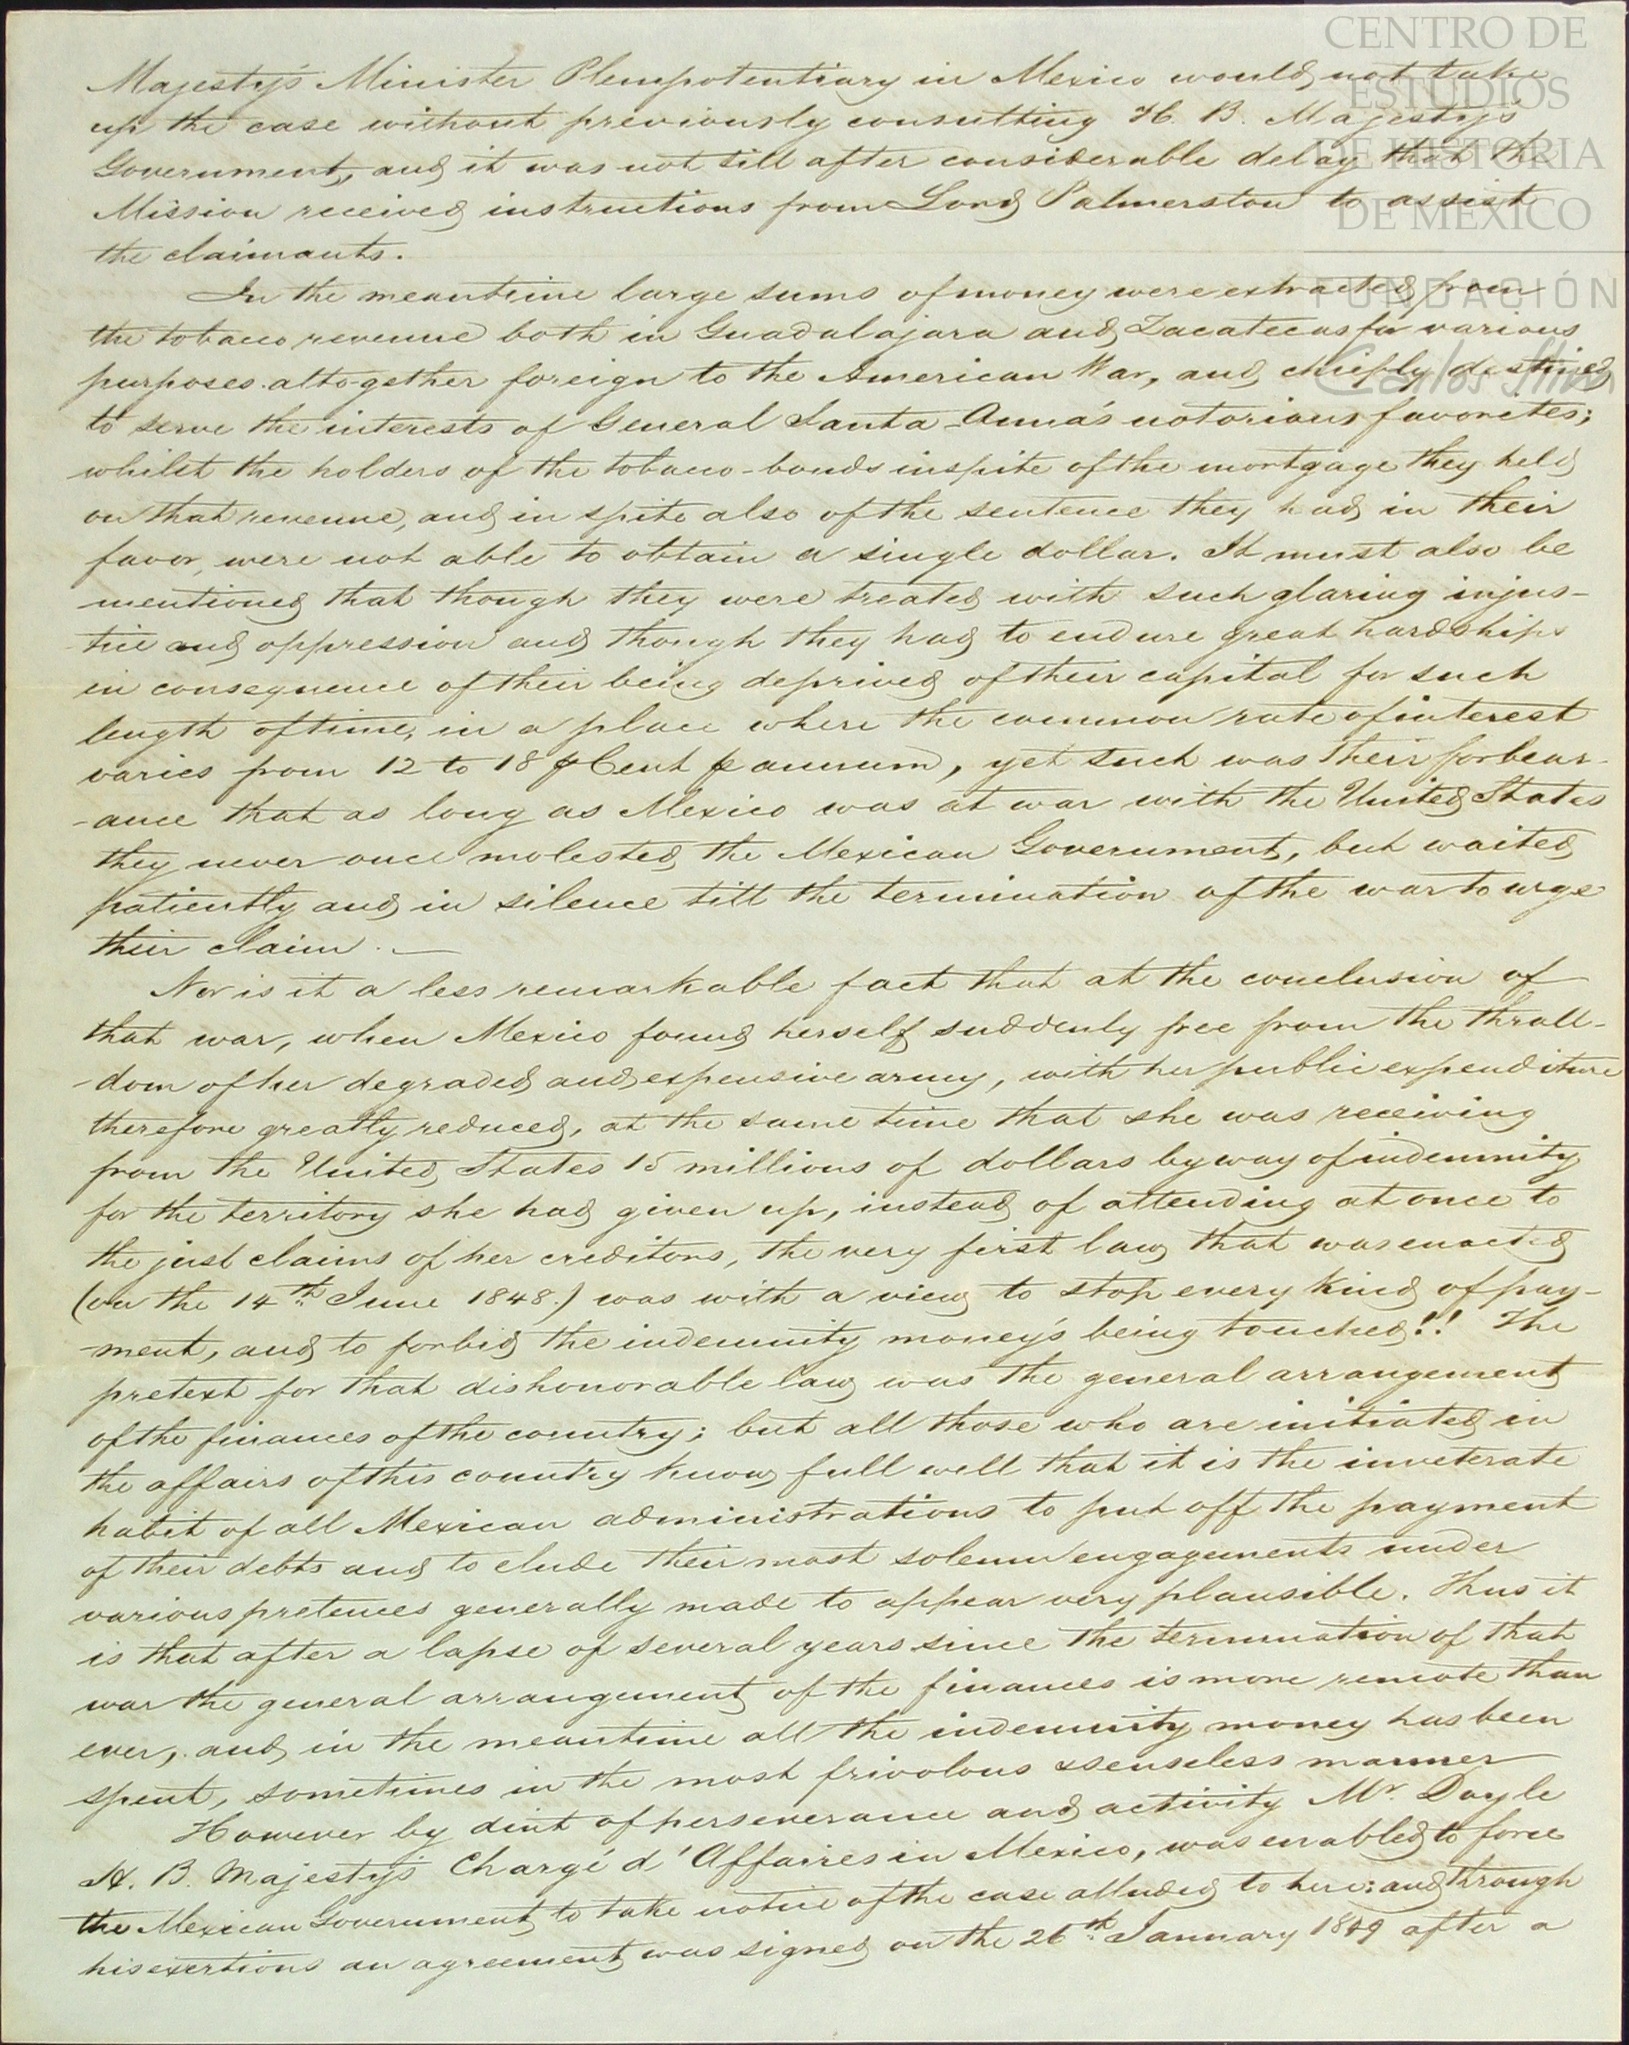 CENTRO DE
ESTUDIOS
DE HISTORIA
DE MEXICO
FUNDACIÓN
Carlos Slim
Majesty's Minister Plenipotentiary in Mexico would not take
up the case without previously consulting H. B. Majesty's
Government, and it was not till after considerable delay that the
Mission received instructions from Lord Palmerston to assist
the claimants.
In the meantime large sums of money were extracted from
the tobacco revenue both in Guadalajara and Zacatecas for various
purposes altogether foreign to the American War, and chiefly destined
to serve the interests of General Santa-Anna's notorious favorites;
whilst the holders of the tobacco-bonds inspite of the mortgage they held
on that revenue, and in spite also of the sentence they had in their
favor, were not able to obtain a single dollar. It must also be
mentioned that though they were treated with such glaring injus-
tice and oppression and though they had to endure great hardships
in consequence of their being deprived of their capital for such
length of time, in a place where the common rate of interest
varies from 12 to 18 ⅌ Cent ⅌ annum, yet such was their forbear-
-ance that as long as Mexico was at war with the United States
they never once molested the Mexican Government, but waited
patiently and in silence till the termination of the war to urge
their claim. —
Nor is it a less remarkable fact that at the conclusion of
that war, when Mexico found herself suddenly free from the thrall-
-dom of her degraded and expensive army, with her public expenditure
therefore greatly reduced, at the same time that she was receiving
from the United States 15 millions of dollars by way of indemnity
for the territory she had given up, instead of attending at once to
the just claims of her creditors, the very first law that was enacted
(on the 14th June 1848.) was with a view to stop every kind of pay-
-ment, and to forbid the indemnity money's being touched!! The
pretext for that dishonorable law was the general arrangement
of the finances of the country; but all those who are initiated in
the affairs of this country know full well that it is the inveterate
habit of all Mexican administrations to put off the payment
of their debts and to elude their most solemn engagements under
various pretences generally made to appear very plausible. Thus it
is that after a lapse of several years since the termination of that
war the general arrangement of the finances is more remote than
ever, and in the meantime all the indemnity money has been
spent, sometimes in the most frivolous & senseless manner
However by dint of perseverance and activity Mr. Doyle
H. B. Majesty's Chargé d'Affaires in Mexico, was enabled to force
the Mexican Government to take notice of the case alluded to here; and through
his exertions an agreement was signed on the 26th January 1849 after a